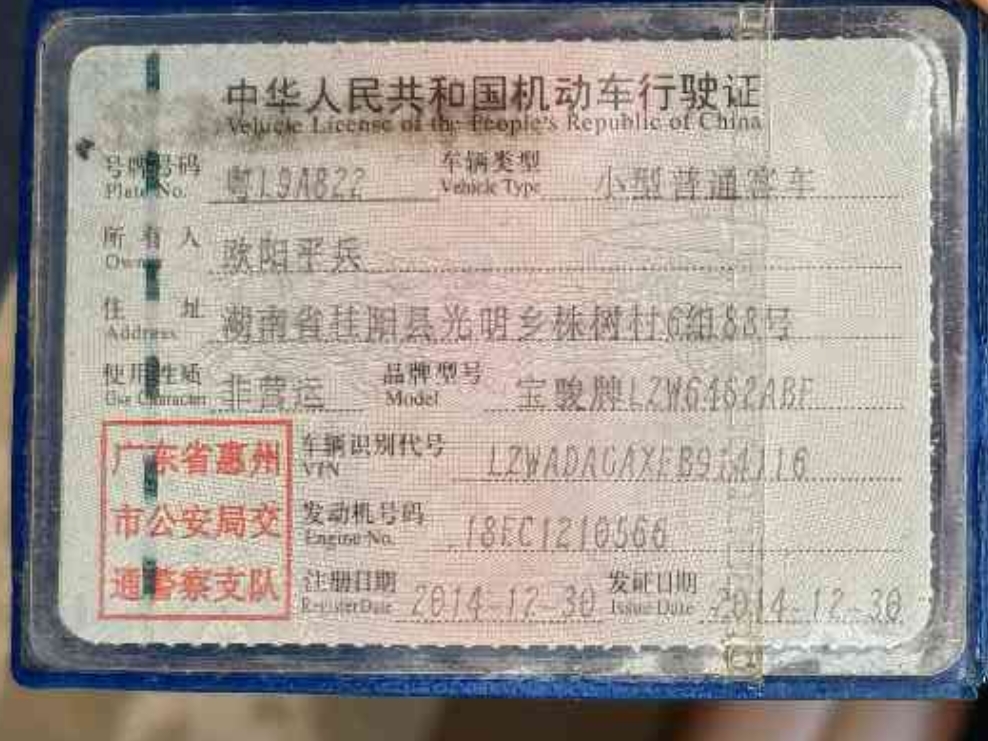 中华人民共和国机动车行驶证
Vehicle License of the People's Republic of China
号牌号码 粤L9A822 车辆类型 小型普通客车
Plate No. Vehicle Type
所有人 欧阳平兵
Owner
住址 湖南省桂阳县光明乡株树村6组88号
Address
使用性质 非营运 品牌型号 宝骏牌LZW6462ABF
Use Character Model
广东省惠州 车辆识别代号
VIN
市公安局交 发动机号码 18EC1210566
Engine No.
通警察支队 注册日期 2014-12-30 发证日期 2014-12-30
Register Date Issue Date